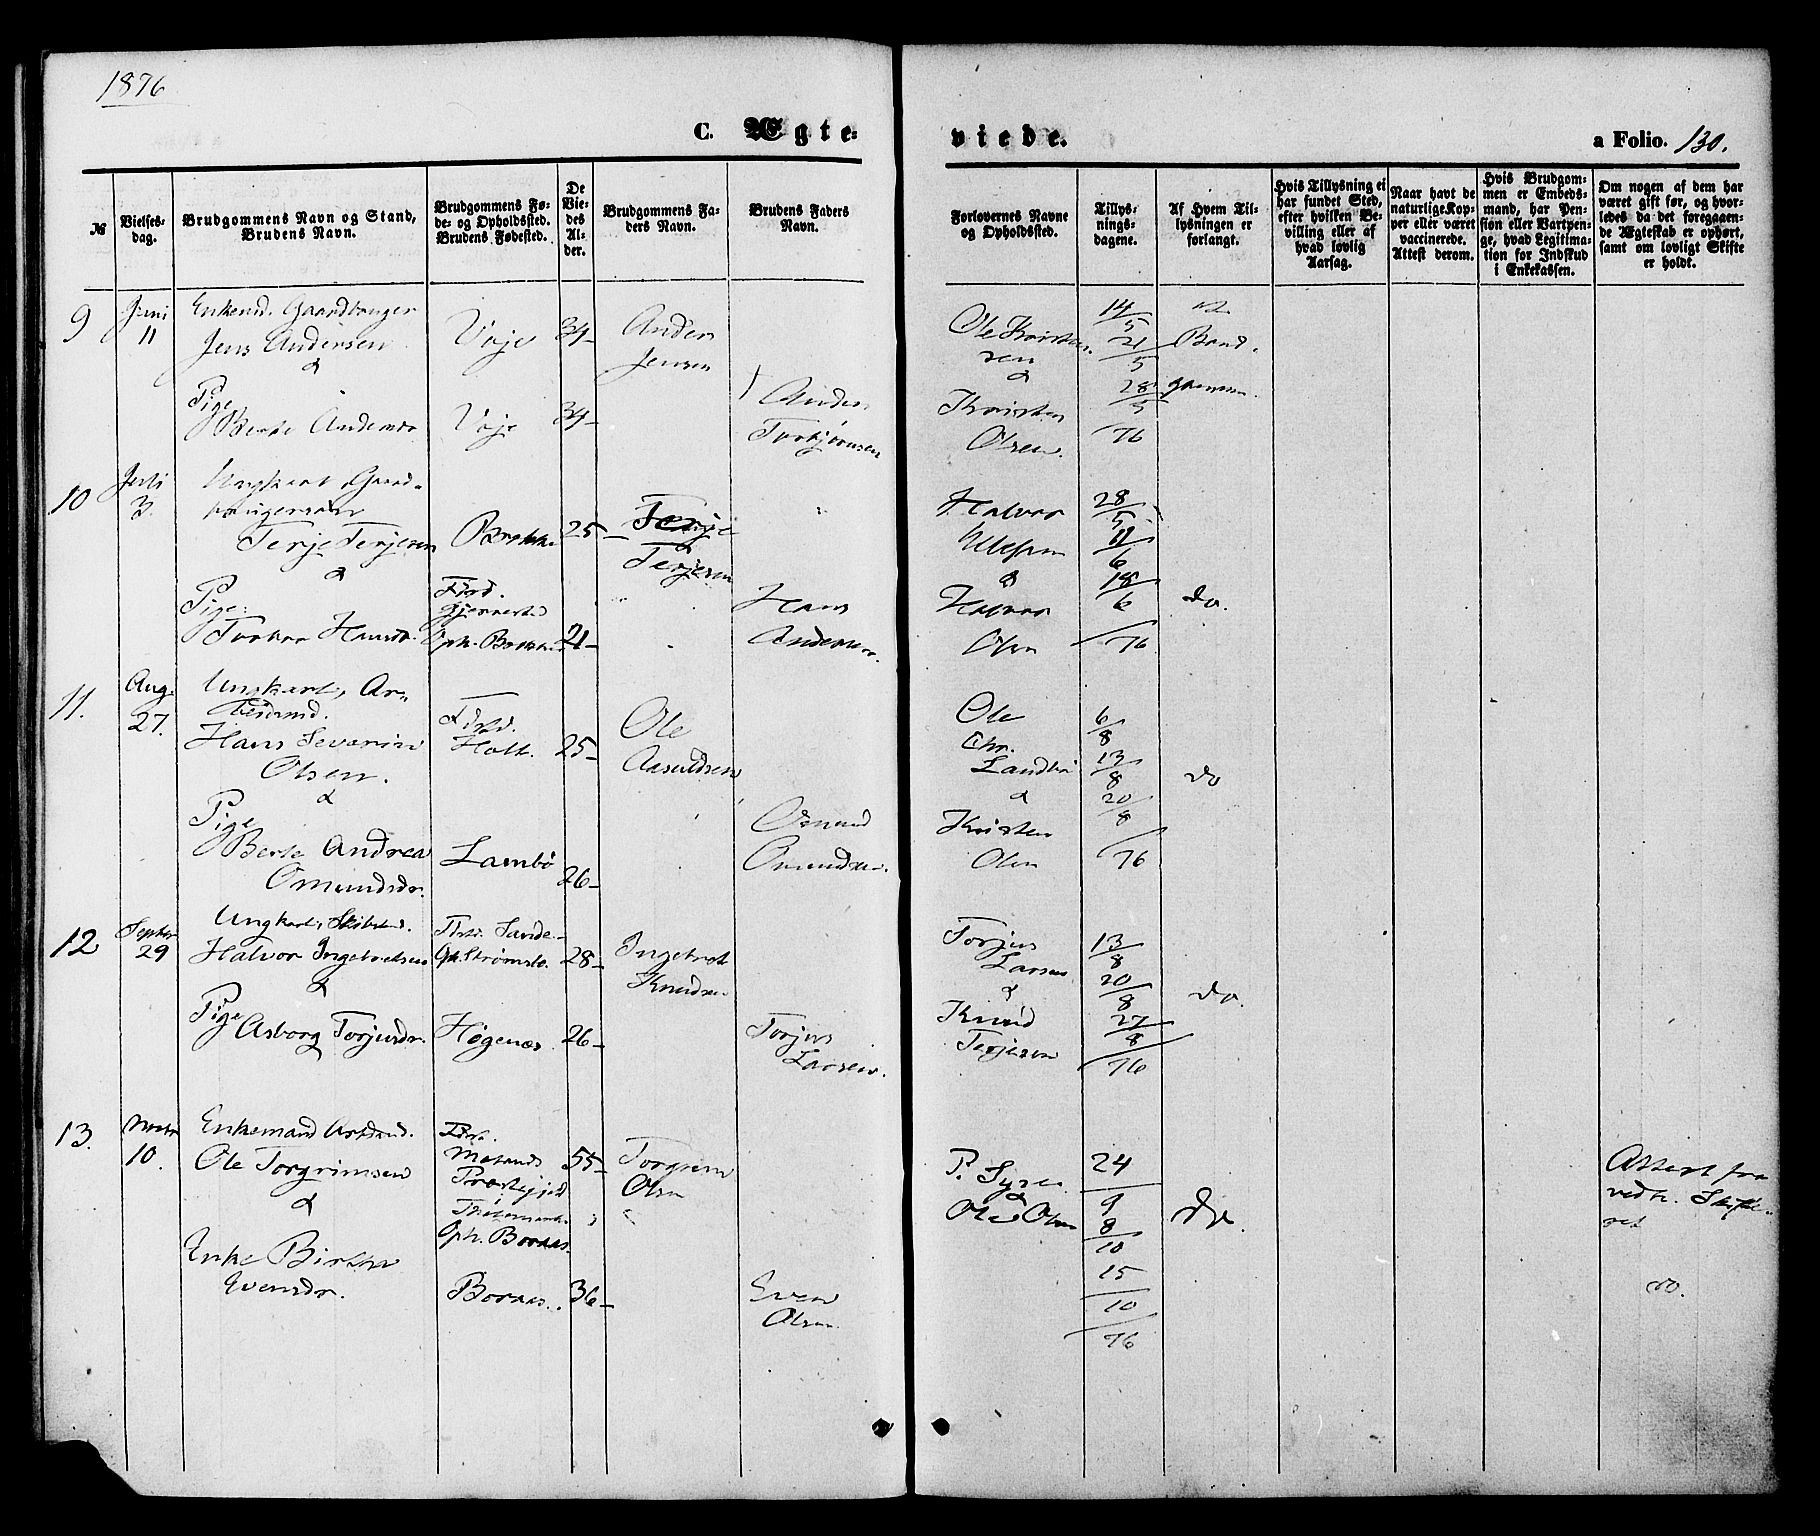 1876
C. Ægte-
viede.
a Folio. 130.
№
Vielses-
dag.
Brudgommens Navn og Stand,
Brudens Navn.
Brudgommens Fø-
de- og Opholdssted.
Brudens Fødested.
De
Vie-
des
Al-
der.
Brudgommens Fa-
ders Navn.
Brudens Faders
Navn.
Forlovernes Navne
og Opholdssted.
Tillys-
nings-
dagene.
Af Hvem Til-
lysningen er
forlangt.
Hvis Tillysning ei
har fundet Sted,
efter hvilken Be-
villing eller af
hvad lovlig
Aarsag.
Naar havt de
naturlige Kop-
per eller været
vaccinerede.
Attest derom.
Hvis Brudgom-
men er Embeds-
mand, har Pen-
sion eller Vartpen-
ge, hvad Legitima-
tion for Indskud
i Enkekassen.
Om nogen af dem har
været gift før, og hvor-
ledes da det foregaaen-
de Ægteskab er ophørt,
samt om lovligt Skifte
er holdt.
9
Juni
11
Enkemd. Gaardbruger
Jens Andersen
&
Pige
Berte Andersdr.
Voje
34-
Voje
34-
Anders
Jensen
Anders
Torbjørnsen
Ole Kristen-
sen
&
Kristen
Olsen.
14/5
21/5
28/5
76
Brud-
gommen.
10
Juli
3.
Ungkarl, Gaard-
brugersøn
Terje Terjesen
&
Pige:
Torbor Hansdr.
25-
Fdsd.
Gjerrestad
Oph.
21-
Terje
Terjesen
Hans
Andersen.
Halvor
&
Halvor
Olsen
28/5
11/6
18/6
76
do.
11.
Aug.
27.
Ungkarl, Ar-
beidsmd.
Hans Severin
Olsen.
&
Pige
Berte Andrea
Omundsdr.
Fdsd.
Holt.
25-
Lambø
26-
Ole
Aasuldsen
Omund
Omundsen.
Ole
Chr.
&
Kristen
Olsen
6/8
13/8
20/8
76
do
12
Septbr.
29
Ungkarl,
Halvor Ingebretsen
&
Pige
Asborg Torjusdr.
Fdsd. Sande.
Oph. Strømsbo.
28-
Høgenæs.
26-
Ingebret
Knudsen
Torjus
Larsen.
Torjus
Larsen
&
Knud
Terjesen
13/8
20/8
27/8
76
do.
13.
Novbr
10.
Enkemand Arbdmd.
Ole Torgrimsen
&
Enke
Evensdr.
Fdsd.
Præstegjeld
Oph. Boraas.
55-
Boraas.
36-
Torgrim
Olsen
Even
Olsen.
&
Ole Olsen
24/9
8/10
15/10
76
do.
Attest fra
vedk. Skifte-
ret
do.